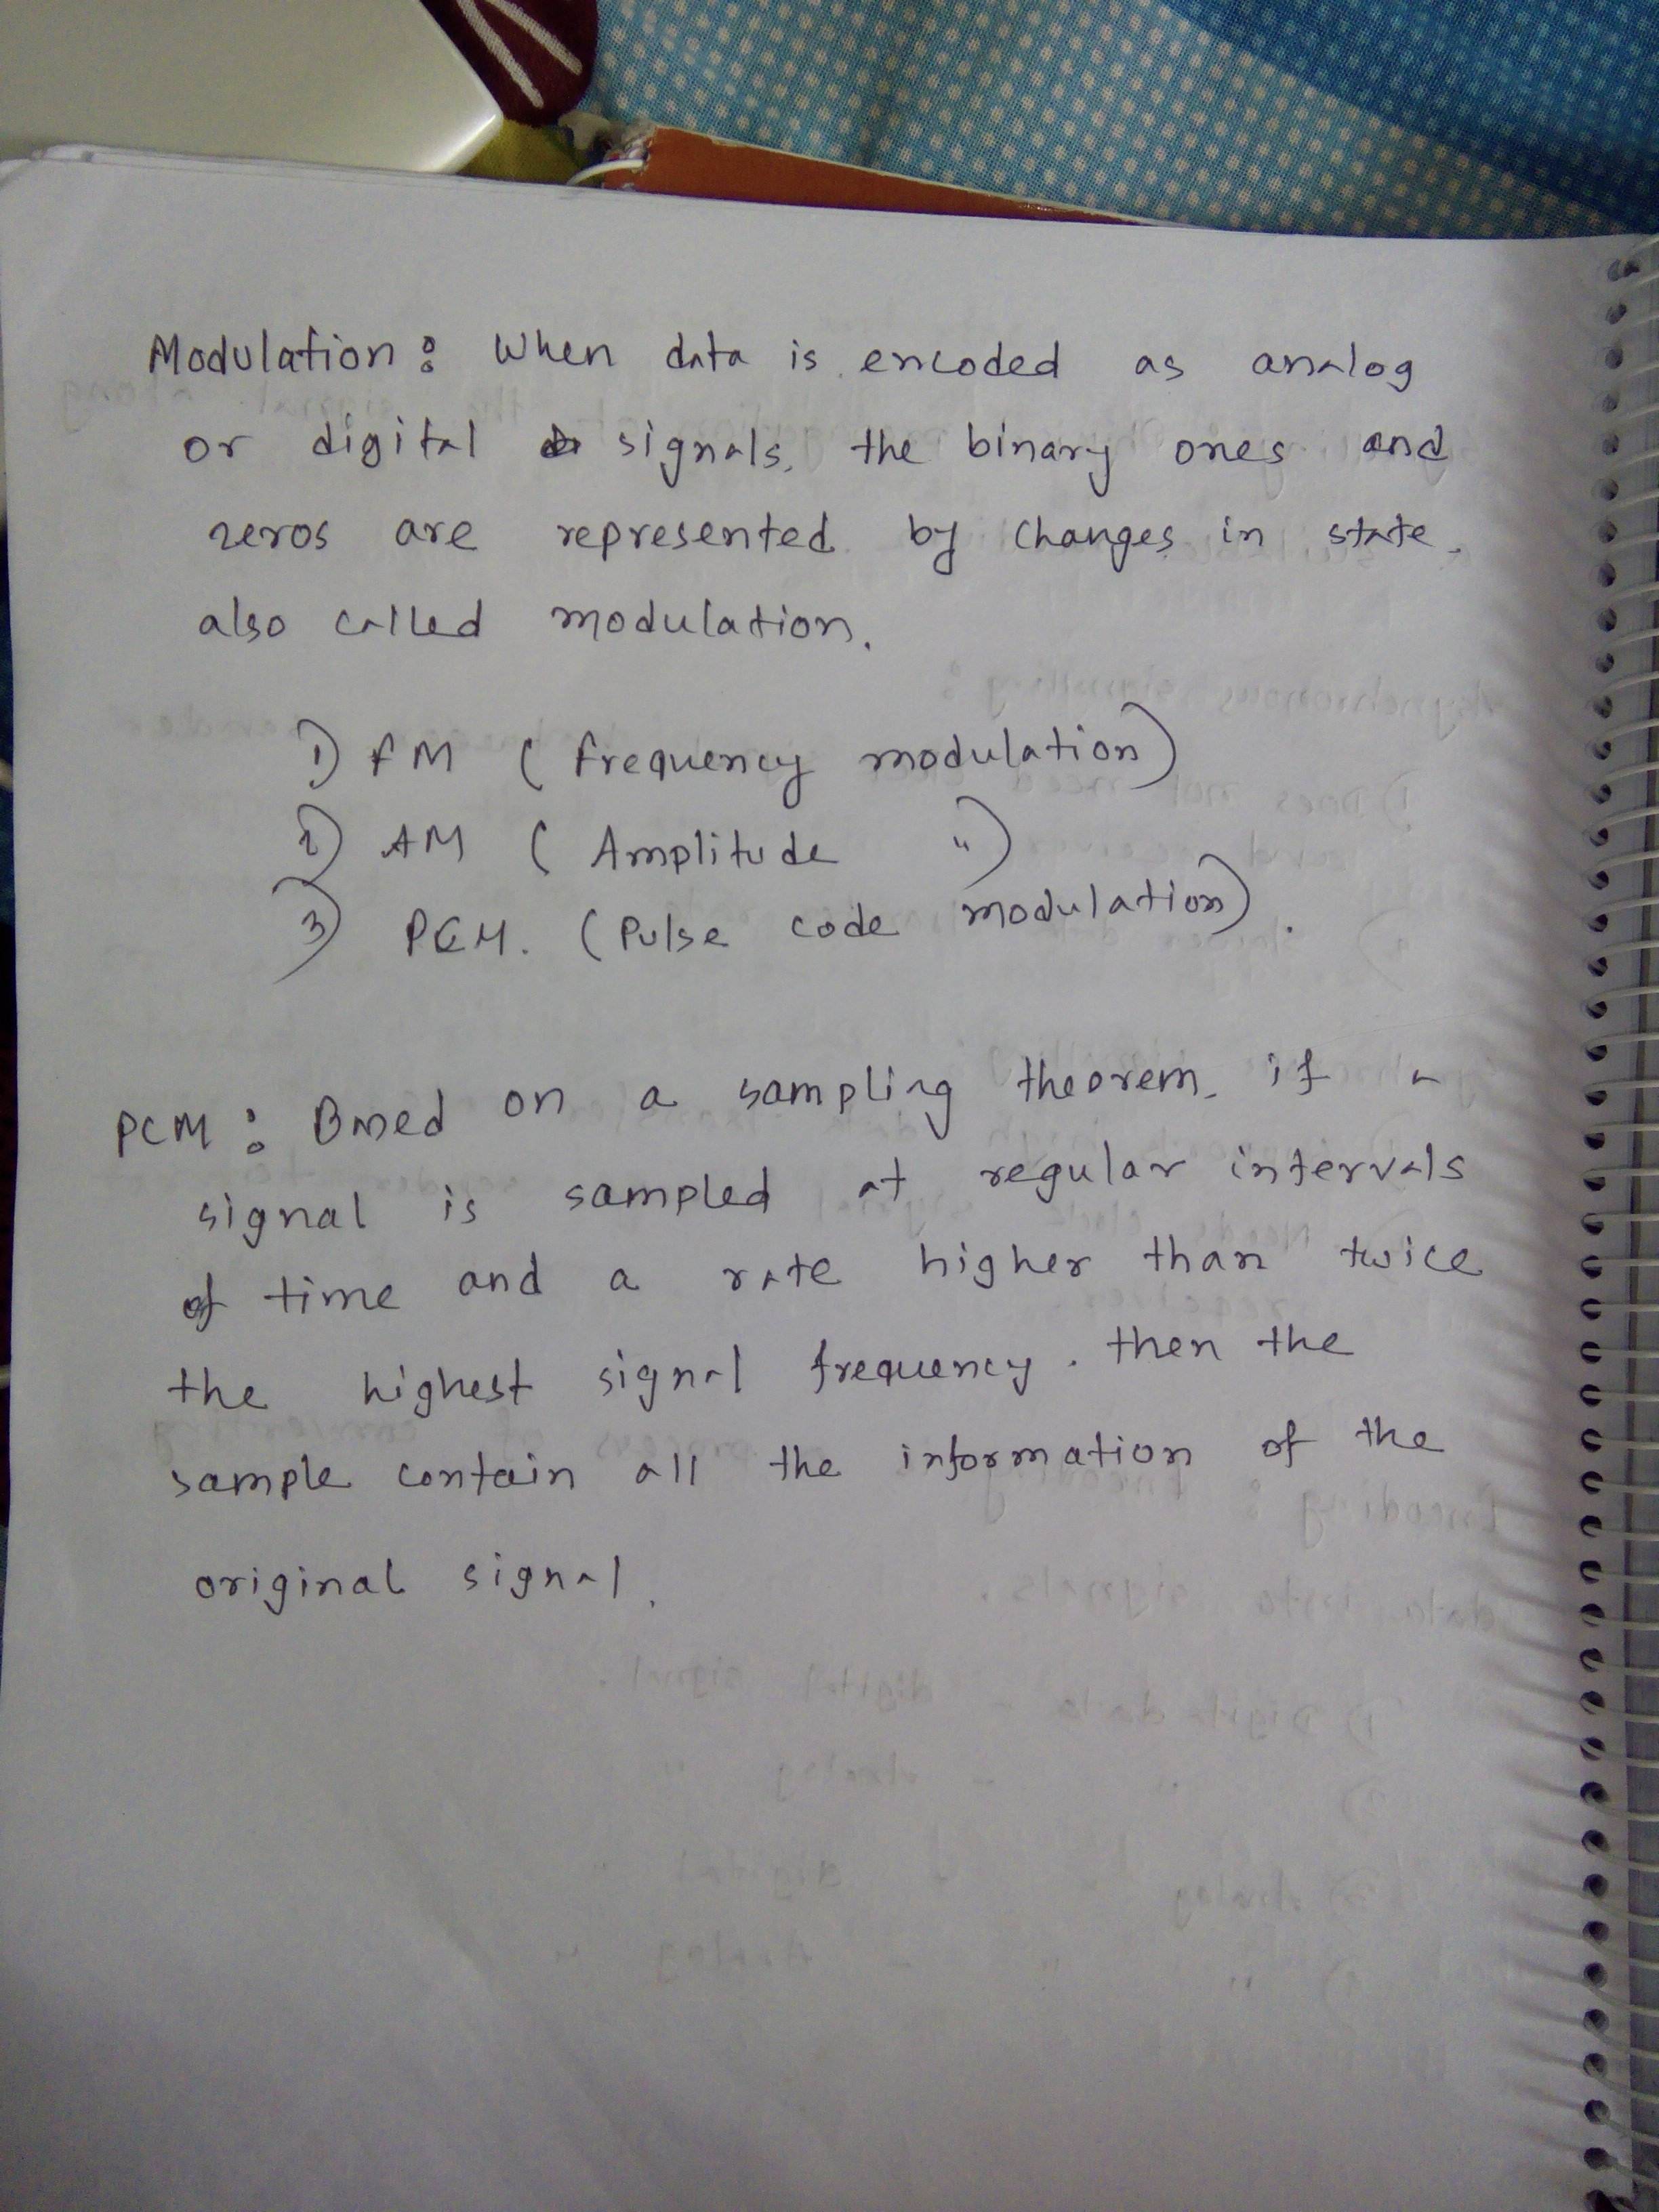 Modulation : When data is encoded as analog
or digital signals, the binary ones and
zeros are represented by changes in state,
also called modulation.
1) FM ( frequency modulation)
2) AM ( Amplitude ")
3) PCM. (Pulse code modulation).
PCM : Based on a sampling theorem, if a
signal is sampled at regular intervals
of time and a rate higher than twice
the highest signal frequency. then the
sample contain all the information of the
original signal.